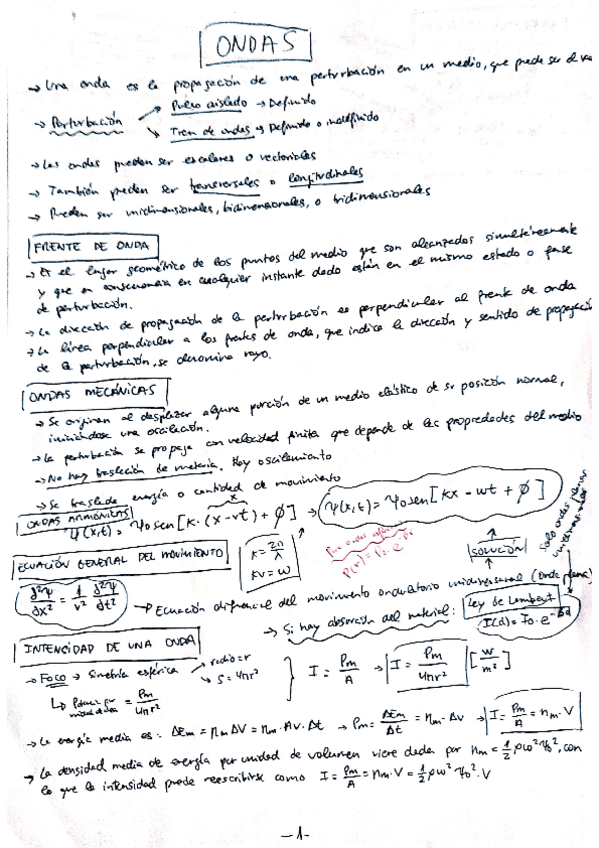 ONDAS
→ Una onda es la propagación de una perturbación en un medio, que puede ser el
→ Perturbación → Pulso aislado → Definido
→ Tren de ondas → Definido o indefinido
→ Las ondas pueden ser escalares o vectoriales
→ También pueden ser transversales o longitudinales
→ Pueden ser unidimensionales, bidimensionales, o tridimensionales
FRENTE DE ONDA
→ Es el lugar geométrico de los puntos del medio que son alcanzados simultáneamente
y que en consecuencia en cualquier instante dado están en el mismo estado o fase
de perturbación.
→ La dirección de propagación de la perturbación es perpendicular al frente de onda
→ La línea perpendicular a los frentes de onda, que indica la dirección y sentido de propagación
de la perturbación, se denomina rayo.
ONDAS MECÁNICAS
→ Se originan al desplazar alguna porción de un medio elástico de su posición normal,
iniciándose una oscilación.
→ La perturbación se propaga con velocidad finita que depende de las propiedades del medio
→ No hay traslación de materia. Hay oscilamiento
→ Se traslada energía o cantidad de movimiento
ONDAS ARMÓNICAS
Ψ(x,t) = Ψ0 sen[k·(x-vt)+ϕ] → Ψ(x,t) = Ψ0 sen[kx - wt + ϕ]
ECUACIÓN GENERAL DEL MOVIMIENTO
k = 2π/λ
kv = w
SOLUCIÓN
solo ondas planas
∂²Ψ/∂x² = 1/v² ∂²Ψ/∂t² → Ecuación diferencial del movimiento ondulatorio unidimensional (Onda plana)
→ Si hay absorción del material: Ley de Lambert
INTENCIDAD DE UNA ONDA
→ Foco → Simetría esférica → radio = r
→ S = 4πr²
I = Pm/A → I = Pm/4πr² [w/m²]
→ La energía media es: ΔEm = ηm ΔV = ηm·Av·Δt → Pm = ΔEm/Δt = ηm·Av → I = Pm/A = ηm·V
→ La densidad media de energía por unidad de volumen viene dada por ηm = 1/2 ρω²Ψ0², con
lo que la intensidad puede reescribirse como I = Pm/A = ηm·V = 1/2 ρω²Ψ0²·V
-1-